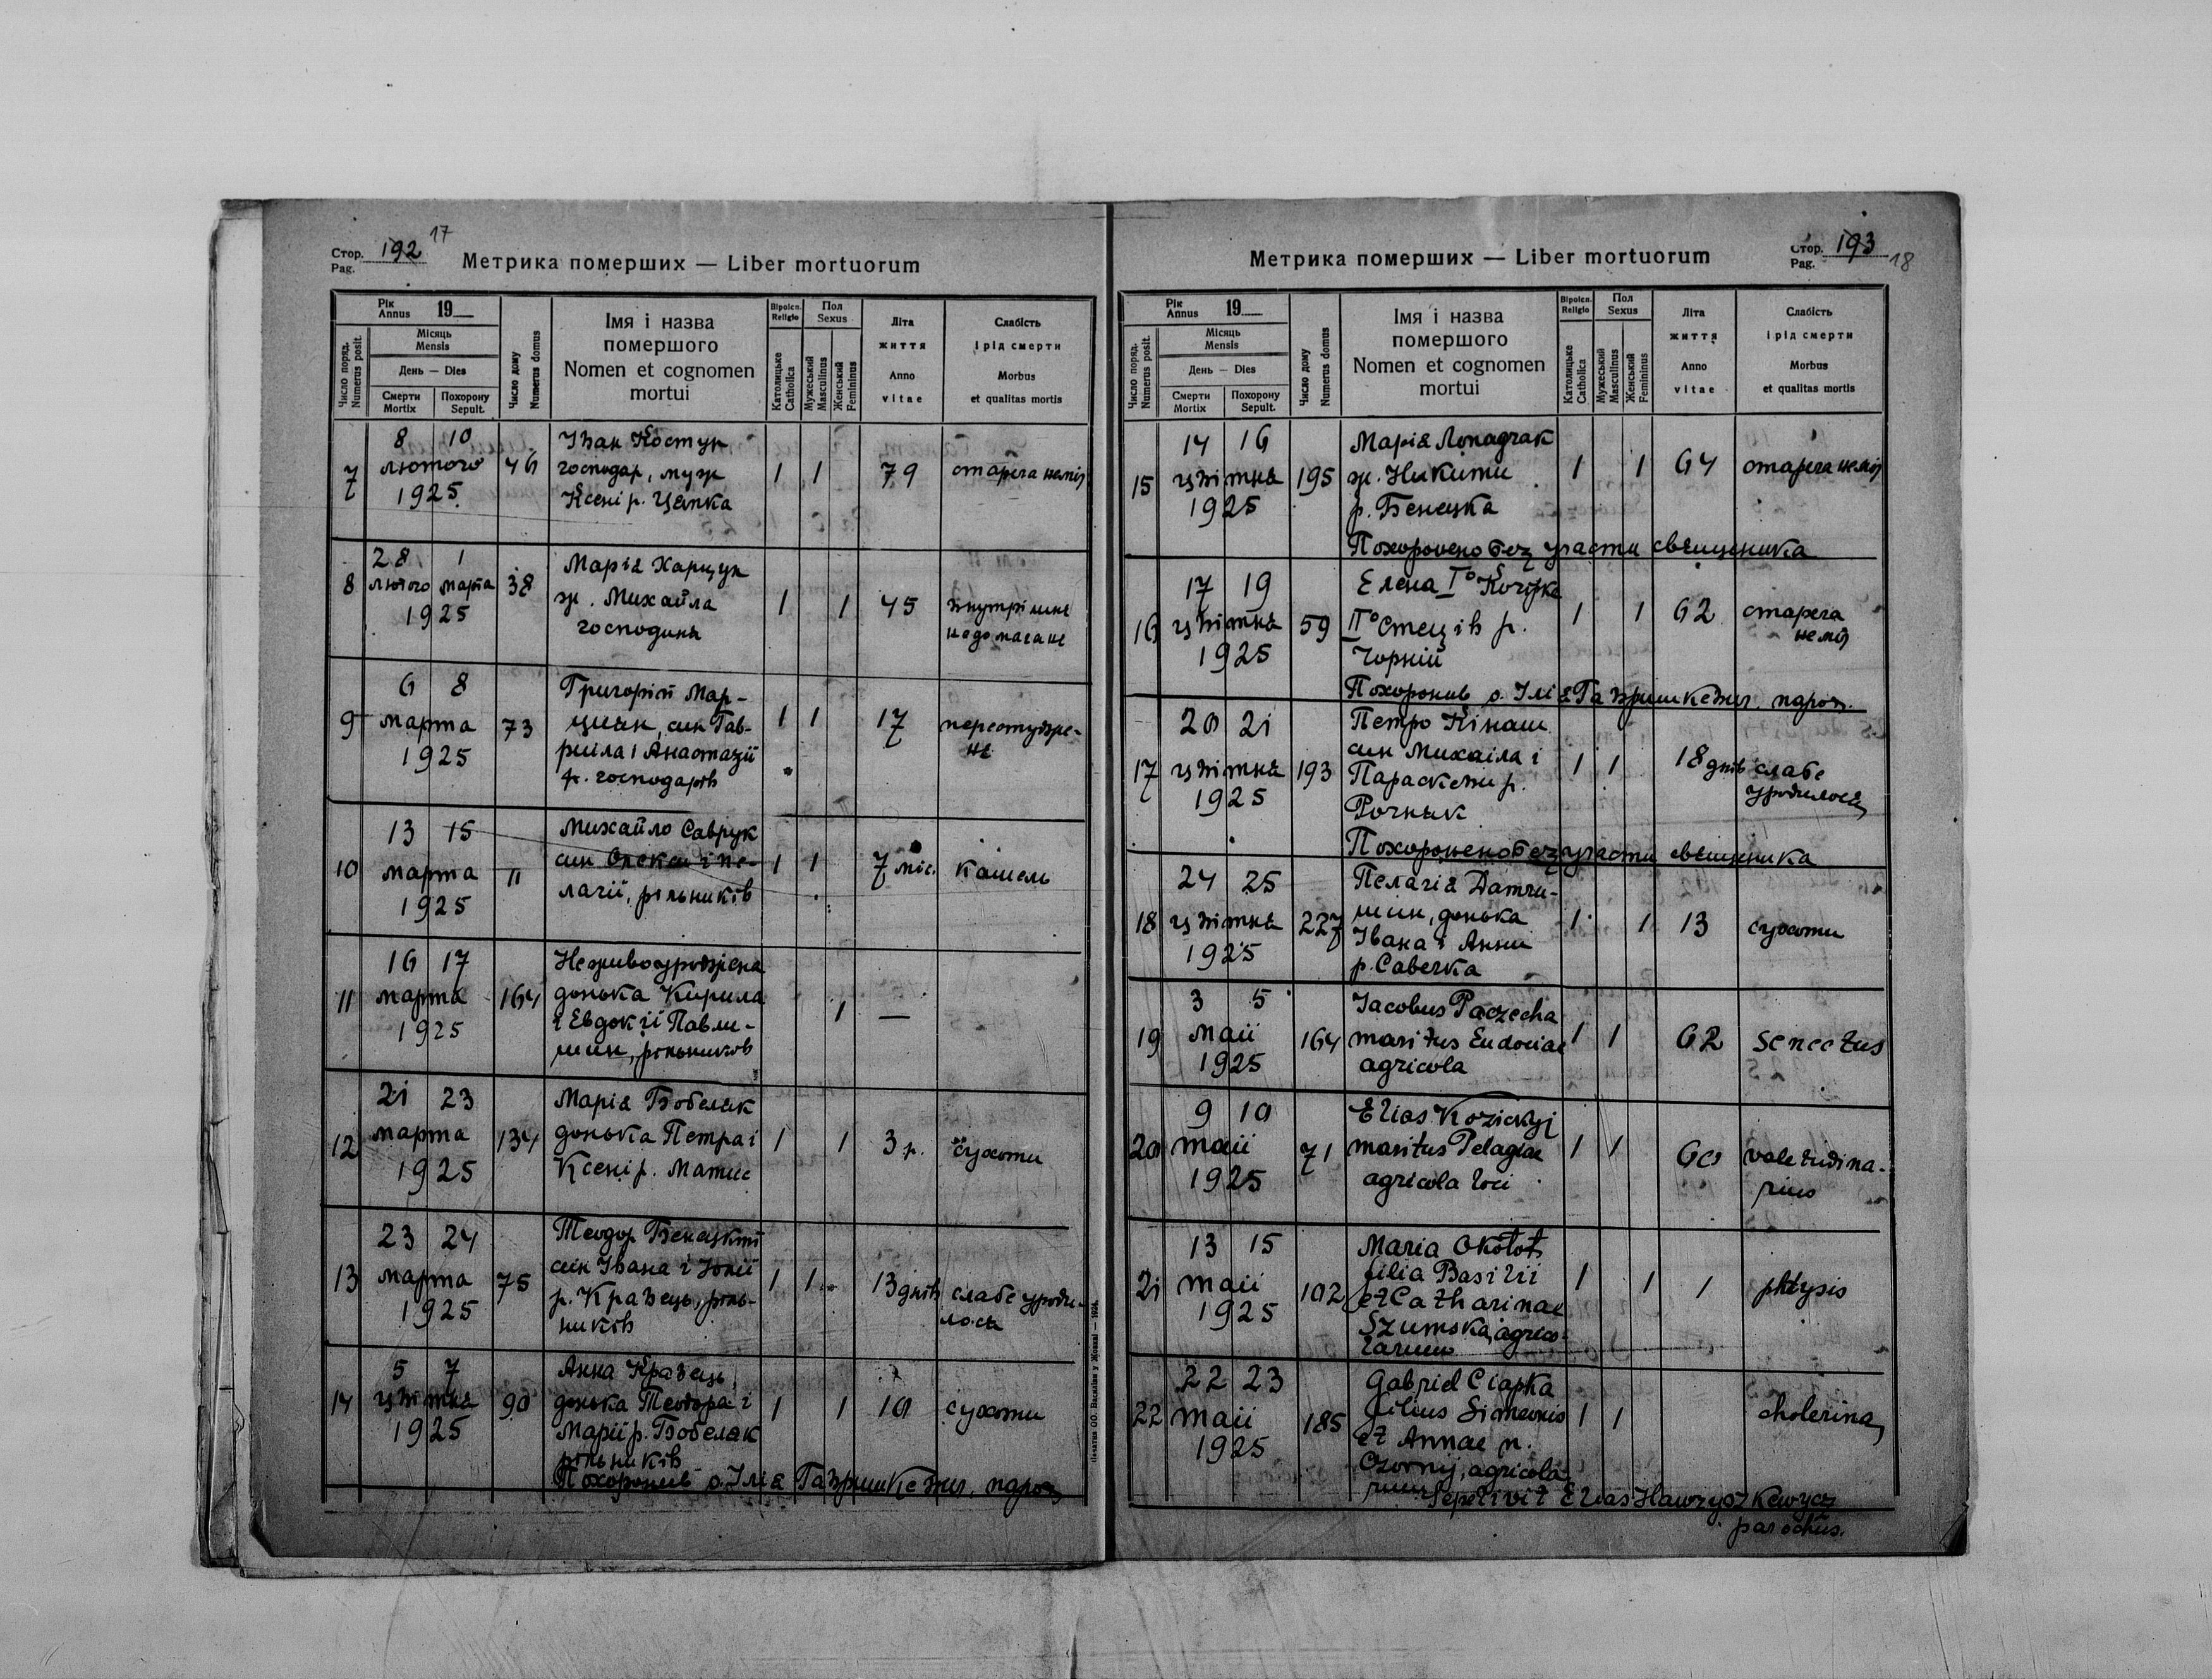 Стор. 192 17
Pag.
Метрика померших — Liber mortuorum
Рік 19
Annus
Місяць
Mensis
День — Dies
Смерти
Mortix
Похорону
Sepult.
Число поряд.
Numerus posit.
Число дому
Numerus domus
Імя і назва
помершого
Nomen et cognomen
mortui
Віроісп.
Religio
Католицьке
Catholica
Пол
Sexus
Мужеський
Masculinus
Женський
Femininus
Літа
життя
Anno
vitae
Слабість
і рід смерти
Morbus
et qualitas mortis
7 8 10 лютого 1925 46 1 1 79
Іван Костук
господар, муж
Ксені р. Цяпка
старега неміч
8 28 лютого 1 марта 1925 38 1 1 45
Марія Харщук
ж. Михайла
господиня
внутрішнє
недомагане
9 6 8 марта 1925 73 1 1 17
Григорій Мар-
циняк, син Гав-
риіла і Анастазії
р. господарів
перестудже-
нє
10 13 15 марта 1925 11 1 1 7 міс.
Михайло Саврук
син Олекси і Пе-
лагії, рільників
кашель
11 16 17 марта 1925 164 1 —
Неживоуроджена
донька Кирила
і Евдокії Павли-
шин, рільників
12 21 23 марта 1925 134 1 1 3 р.
Марія Бобеляк
донька Петра і
Ксені р. Матис
сухоти
13 23 24 марта 1925 75 1 1 13 днів
Теодор Бенецкий
син Івана і Зонії
р. Кравець, ріль-
ників
слабе уроди-
лось
14 5 7 цвітня 1925 90 1 1 10
Анна Кравець,
донька Теодора і
Марії р. Бобеляк
рільників
сухоти
Похоронив о. Ілія Гавришкевич. парох
Печатня ОО. Василіян у Жовкві — 1924.
Стор. 193 18
Pag.
Метрика померших — Liber mortuorum
Рік 19
Annus
Місяць
Mensis
День — Dies
Смерти
Mortix
Похорону
Sepult.
Число поряд.
Numerus posit.
Число дому
Numerus domus
Імя і назва
помершого
Nomen et cognomen
mortui
Віроісп.
Religio
Католицьке
Catholica
Пол
Sexus
Мужеський
Masculinus
Женський
Femininus
Літа
життя
Anno
vitae
Слабість
і рід смерти
Morbus
et qualitas mortis
15 14 16 цвітня 1925 195 1 1 64
Марія Лопадчак
ж. Никити
р. Бенецка
старега неміч
Похоронено без участи священика
16 17 19 цвітня 1925 59 1 1 62
Елена I° Кочірка
II° Стеців р.
Чорній
старега
неміч
Похоронив о. Ілія Гавришкевич. парох.
17 20 21 цвітня 1925 193 1 1 18 днів
Петро Кінаш
син Михаіла і
Параскеви р.
Рочняк
слабе
уродилось
Похоронено без участи священика
18 24 25 цвітня 1925 227 1 1 13
Пелагія Датчи-
шин, донька
Івана і Анни
р. Савечка
сухоти
19 3 5 maii 1925 164 1 1 62
Jacobus Paczecha
maritus Eudociae
agricola
senectus
20 9 10 maii 1925 71 1 1 60
Elias Kozickyj
maritus Pelagiae
agricola loci
valetudina-
rius
21 13 15 maii 1925 102 1 1 1
Maria Okołot
filia Basilii
et Catharinae
Szumska, agrico-
larum
phtysis
22 22 23 maii 1925 185 1 1
Gabriel Ciapka
filius Simeonis
et Annae n.
Czornij, agricola-
rum
cholerina
Sepelivit Elias Hawryszkewycz
parochus.